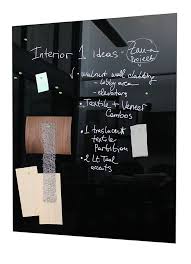 Interior 1 ideas - Zau-a
Project
✓ walnut wall cladding
- lobby area
- elevators
• Textile + Veneer
Combos
• 1 translucent
textile
Partition
• 2 Lt Teal
accents